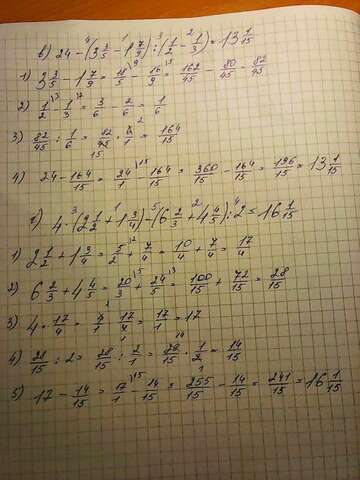 в) 24 - (3 3/5 - 1 7/9) : (1/2 - 1/3) = 13 1/15
1) 3 3/5 - 1 7/9 = 18/5 - 16/9 = 162/45 - 80/45 = 82/45
2) 1/2 - 1/3 = 3/6 - 2/6 = 1/6
3) 82/45 : 1/6 = 82/45 · 6/1 = 164/15
4) 24 - 164/15 = 24/1 - 164/15 = 360/15 - 164/15 = 196/15 = 13 1/15
4 · (2 1/2 + 1 3/4) - (6 2/3 + 4 4/5) : 2 = 16 1/15
1) 2 1/2 + 1 3/4 = 5/2 + 7/4 = 10/4 + 7/4 = 17/4
2) 6 2/3 + 4 4/5 = 20/3 + 24/5 = 100/15 + 72/15 = 28/15
3) 4 · 17/4 = 4/1 · 17/4 = 17/1 = 17
4) 28/15 : 2 = 28/15 : 2/1 = 28/15 · 1/2 = 14/15
5) 17 - 14/15 = 17/1 - 14/15 = 255/15 - 14/15 = 241/15 = 16 1/15